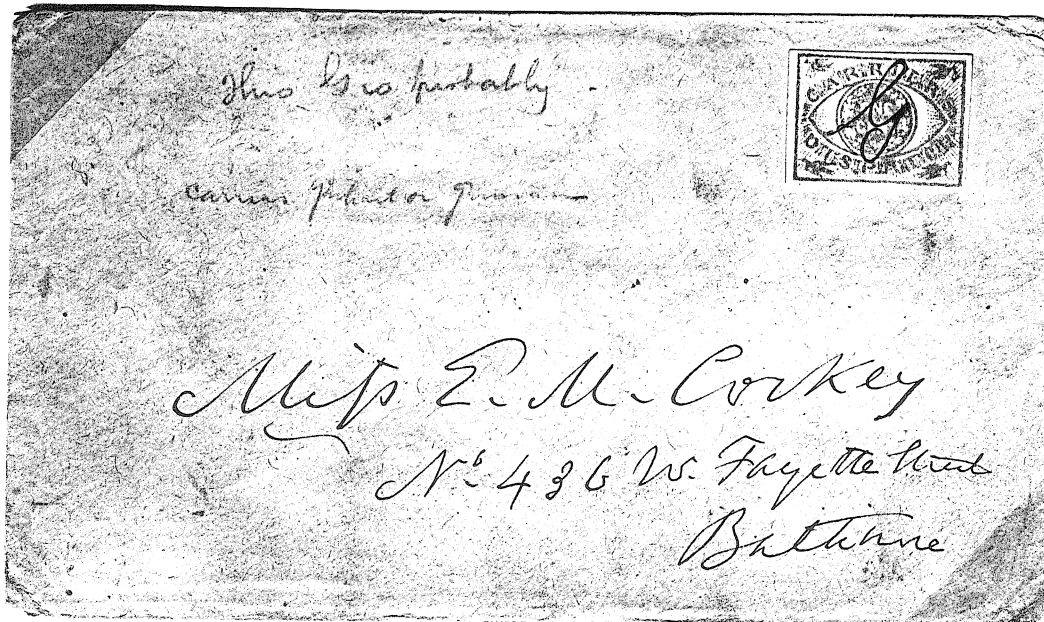 This G is probably
carriers
CARRIERS
G
DISPATCH
Miss E. M. Cockey
No. 436 W. Fayette Street
Baltimore